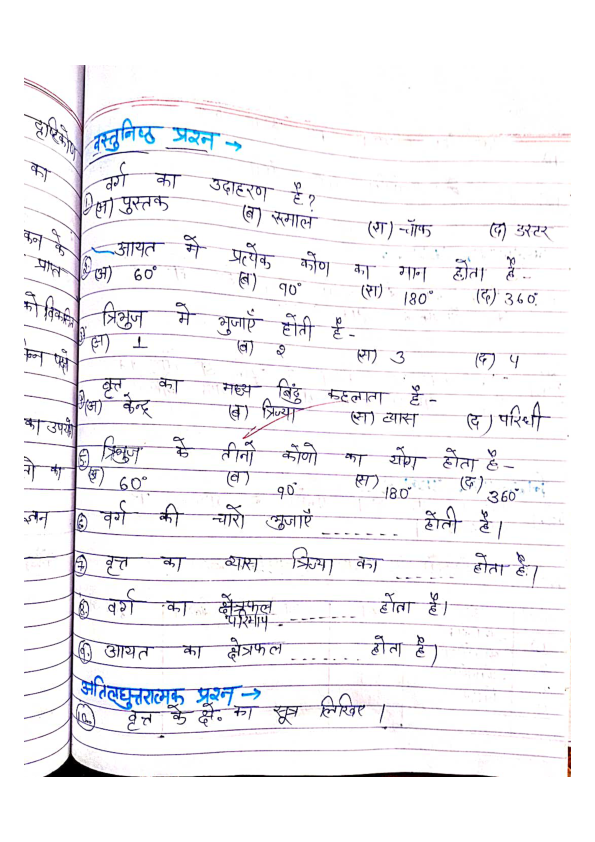 दृष्टिकोण
का
के
प्राप्त
को विकसित
का उपयो
का
वस्तुनिष्ठ प्रश्न →
1. वर्ग का उदाहरण है?
(अ) पुस्तक (ब) रुमाल (स) चॉक (द) डस्टर
2. आयत में प्रत्येक कोण का मान होता है -
(अ) 60° (ब) ९०° (स) 180° (द) 360°
3. त्रिभुज में भुजाएँ होती है -
(अ) 1 (ब) २ (स) 3 (द) 4
4. वृत्त का मध्य बिंदु कहलाता है -
(अ) केन्द्र (ब) त्रिज्या (स) व्यास (द) परिधी
5. त्रिभुज के तीनों कोंणो का योंग होता है -
(अ) 60° (ब) ९०° (स) 180° (द) 360°
6. वर्ग की चारों भुजाएँ ------- होती है।
7. वृत्त का व्यास त्रिज्या का ------ होता है।
8. वर्ग का क्षेत्रफल ------- होता है।
परिमाप
9. आयत का क्षेत्रफल ------- होता है।
अतिलघुत्तरात्मक प्रश्न →
10. वृत्त के क्षे. का सूत्र लिखिए।